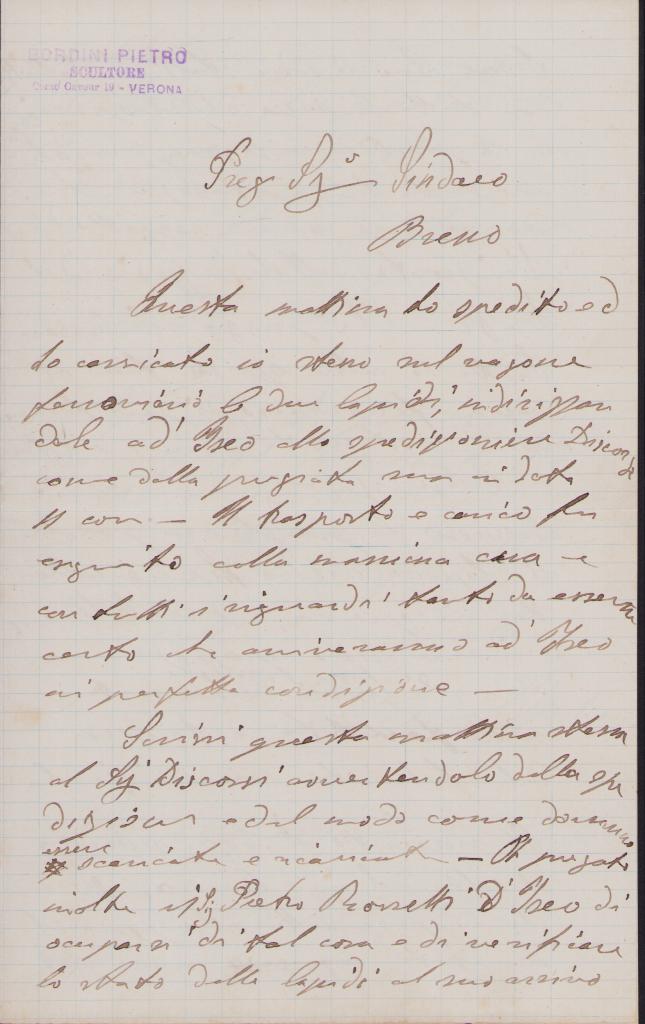 BORDINI PIETRO
SCULTORE
Corso Cavour 19 - VERONA
Preg Sigr Sindaco
Breno
Questa mattina ho spedito ed
ho caricato io stesso sul vagone
ferroviario le due lapidi, indirizzan
dole ad' Iseo allo spedizioniere
come dalla pregiata sua in data
11 corr — Il trasporto e carico fu
eseguito colla massima cura e
con tutti i riguardi tanto da esserne
certo che arriveranno ad' Iseo
in perfetta condizione —
Scrissi questa mattina stessa
al Sig Discorsi avvertendolo della spe
dizione e del modo come dovranno
essere
scaricate e ricaricate — Ho pregato
inoltre il Sig Pietro Rossetti D'Iseo di
occuparsi di tal cosa e di verificare
lo stato delle lapidi al suo arrivo